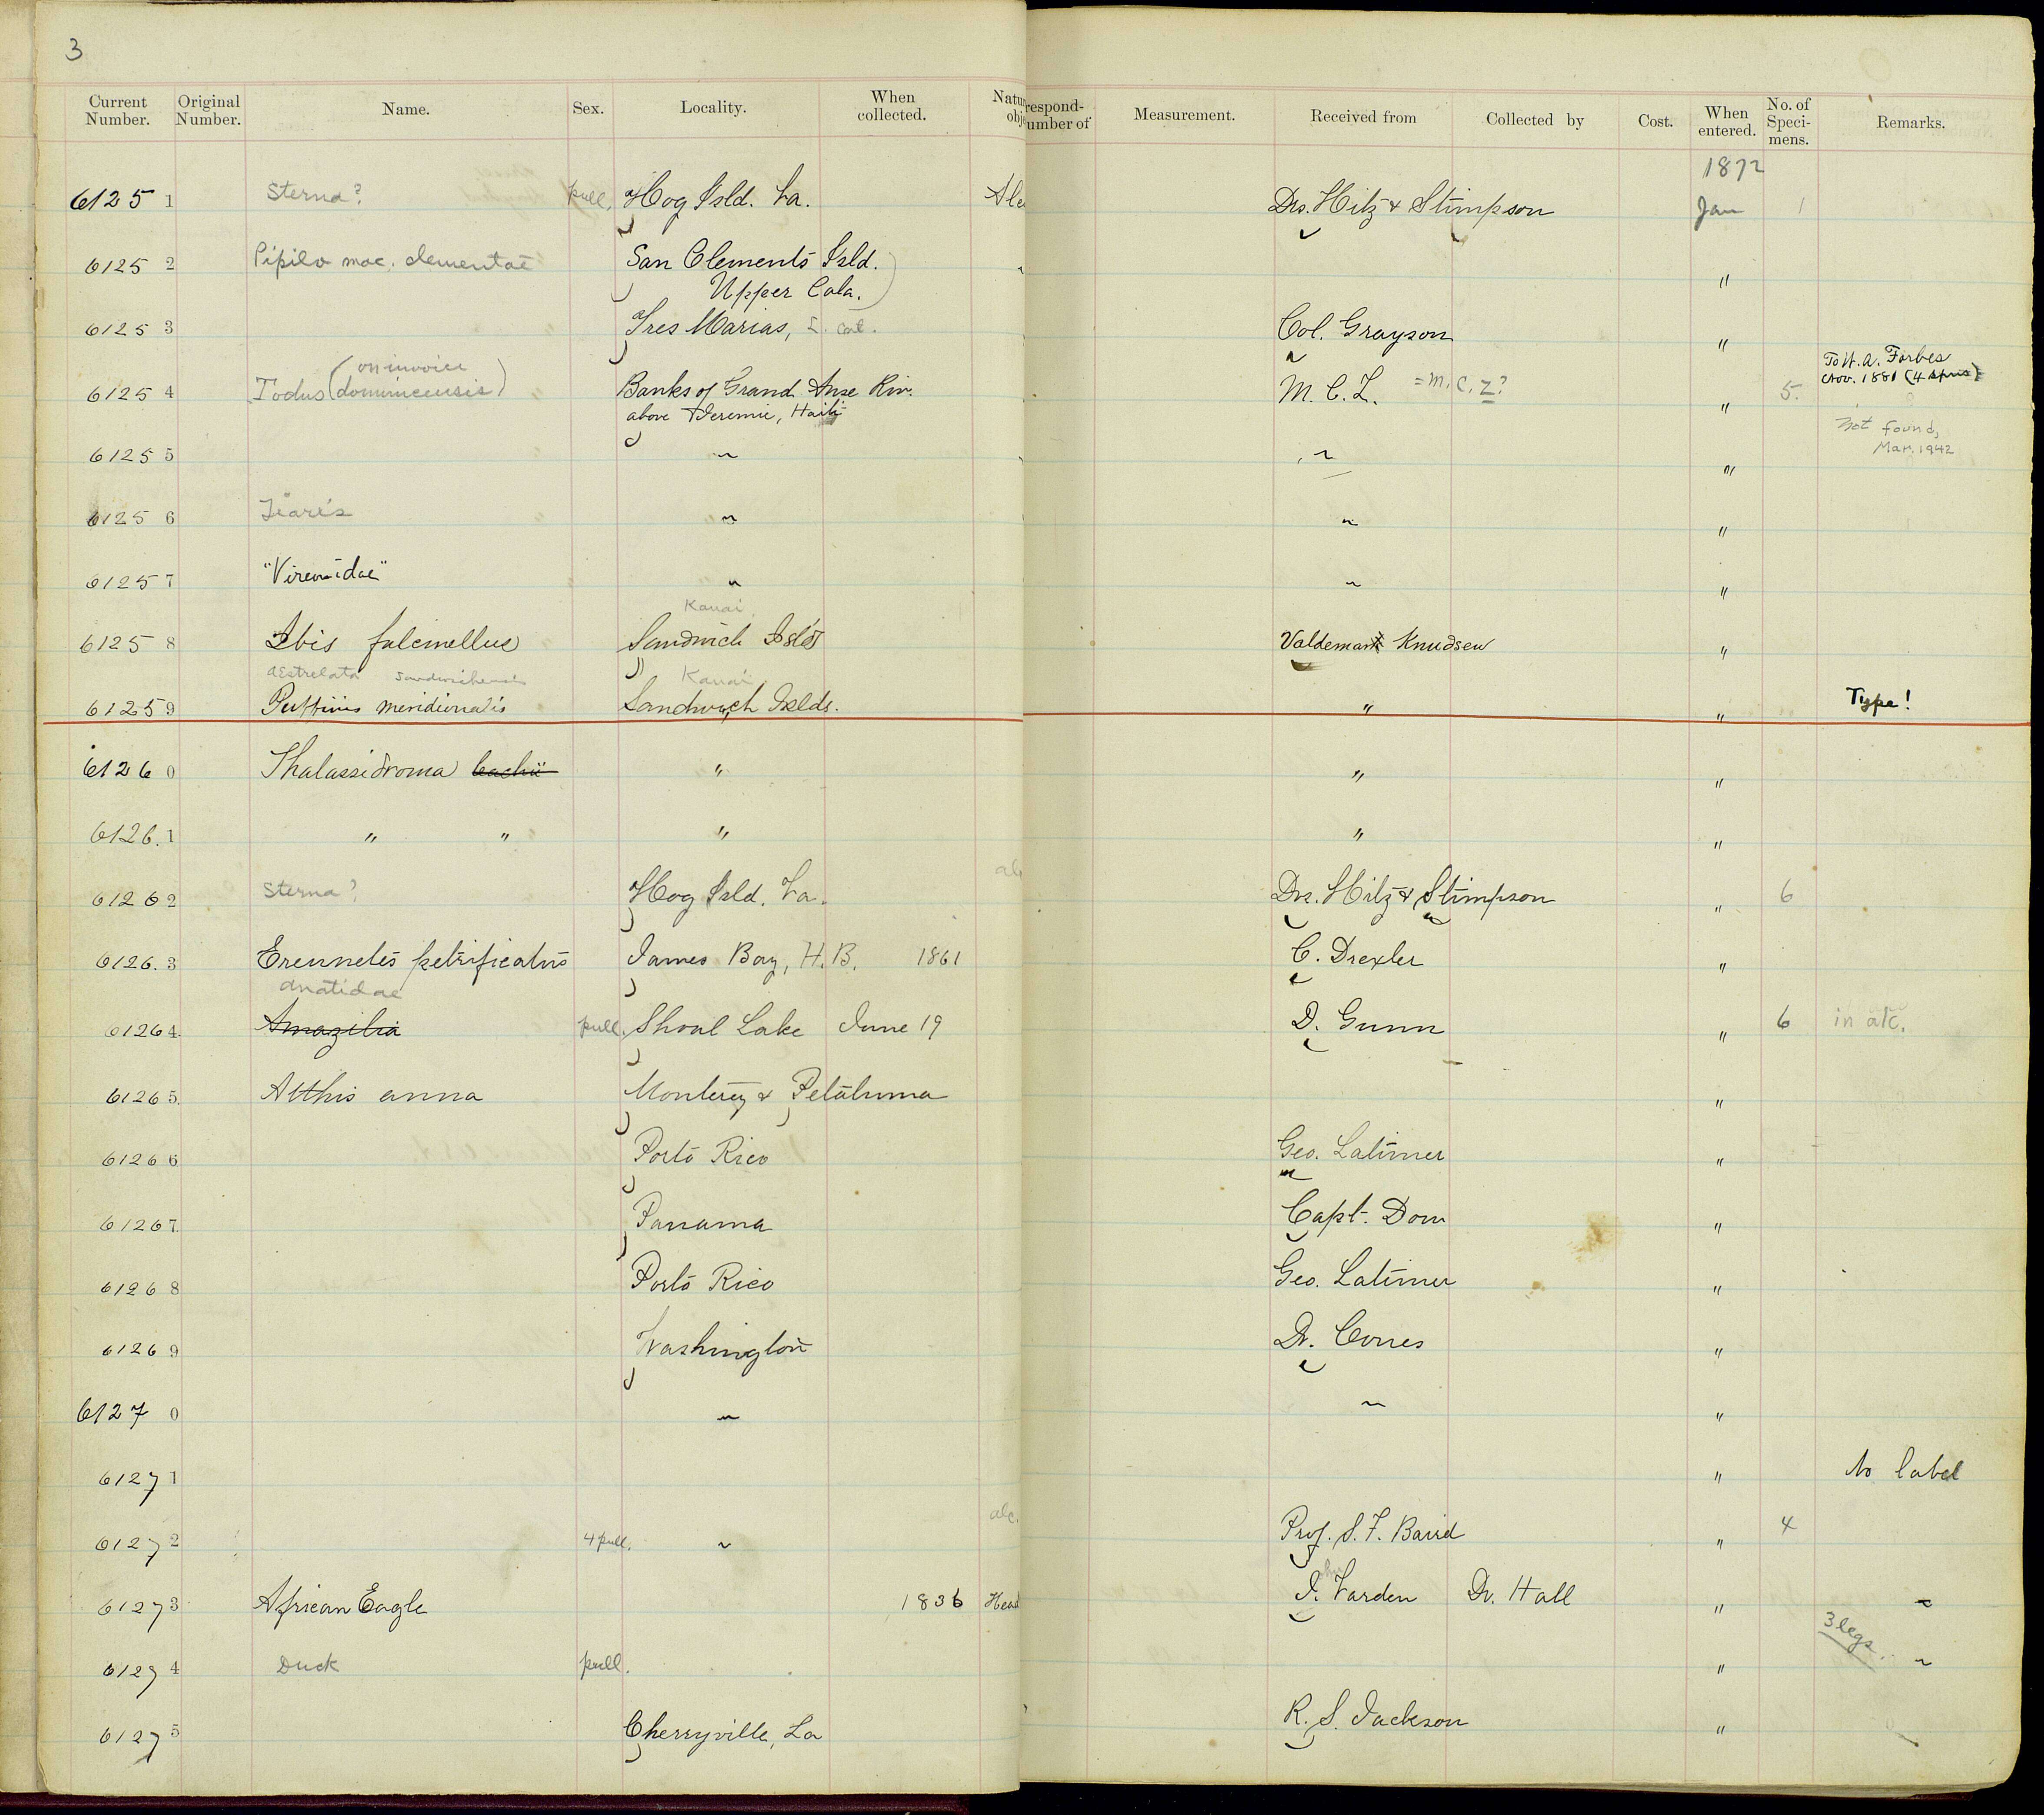 3
Current Number. Original Number. Name. Sex. Locality. When collected. Natu obje respond- umber of Measurement. Received from Collected by Cost. When entered. No. of Speci- mens. Remarks.
1872
61251 Sterna? pull. Hog Isld. Va. Alc Drs. Hitz & Stimpson Jan 1
61252 Pipilo mac. clementae San Clements Isld. "
Upper Cala.
61253 Tres Marias, L. Cal. Col. Grayson "
on invoice To W. A. Forbes
61254 Todus (dominicensis) Banks of Grand Anse Riv. M. C. Z. = M. C. Z? " 5. Nov. 1881
above Jeremie, Haiti
Not found,
Mar. 1942
61255 " " "
61256 Tiaris " " "
61257 "Vireonidae" " " "
Kauai
61258 Ibis falcinellus Sandwich Islds Valdemar Knudsen "
AEstrelata sandwichensis Kauai
61259 Puffinus meridionalis Sandwich Islds. " " Type!
61260 Thalassidroma leachii " " "
61261 " " " " "
61262 Sterna? Hog Isld. Va. Drs. Hitz & Stimpson " 6
61263 Ereunetes petrificatus James Bay, H. B. 1861 C. Drexler "
Anatidae
61264 Amazilia pull. Shoal Lake June 19 D. Gunn " 6 in alc.
61265 Atthis anna Monterey & Petaluma "
61266 Porto Rico Geo. Latimer "
61267 Panama Capt. Dow "
61268 Porto Rico Geo. Latimer "
61269 Washington Dr. Coues "
61270 " " "
61271 " No label
61272 4 pull. " alc. Prof. S. F. Baird " 4
61273 African Eagle 1836 Head J. Varden Dr. Hall " "
3 legs.
61274 Duck pull. " "
61275 Cherryville, La R. S. Jackson "